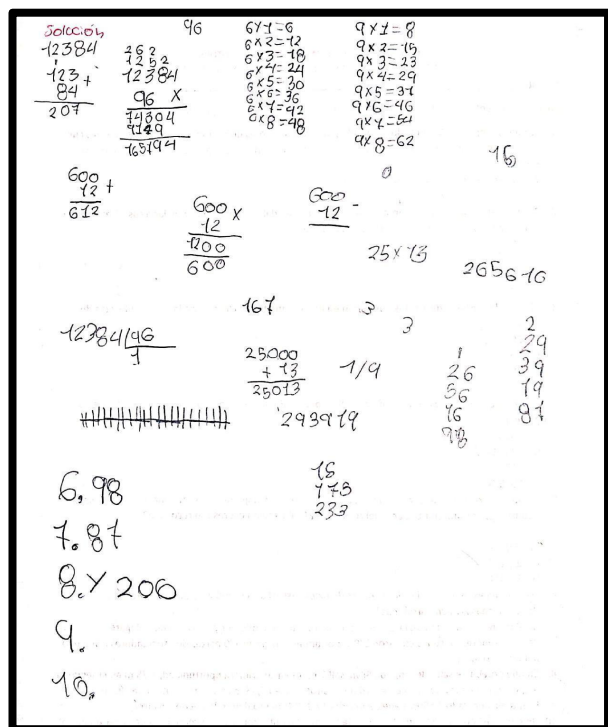 Solución
12384
1
123 +
84
207
96
262
1252
12384
96 X
74304
9149
165794
6x1=6
6x2=12
6x3=18
6x4=24
6x5=30
6x6=36
6x7=42
6x8=48
9x1=8
9x2=15
9x3=23
9x4=29
9x5=37
9x6=46
9x7=54
9x8=62
0
16
600
12 +
612
600 X
12
1200
600
600 -
12
25x13
265616
167
3
3
12384/96
1
25000
+ 13
25013
1/9
293919
1
26
56
16
98
2
29
39
19
87
173
233
6. 98
7. 87
8. Y 206
9.
10.